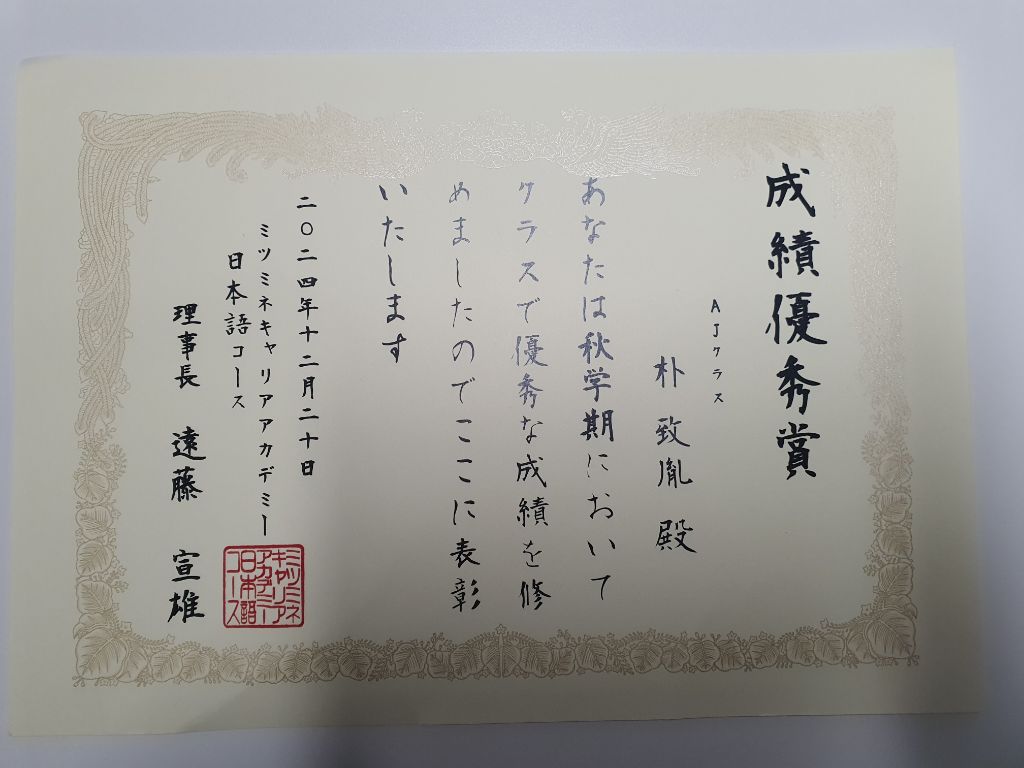 成績優秀賞
AJクラス
朴致胤 殿
あなたは秋学期において
クラスで優秀な成績を修
めましたのでここに表彰
いたします
二〇二四年十二月二十日
ミツミネキャリアアカデミー
日本語コース
理事長 遠藤 宣雄
ミツミネ
キャリア
アカデミー
日本語
コース